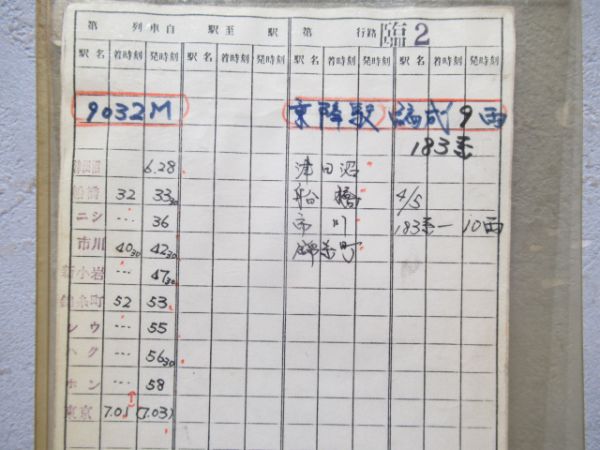 第 列車自 駅至 駅 第 行路 臨2
駅名 着時刻 発時刻 駅名 着時刻 発時刻 駅名 着時刻 発時刻 駅名 着時刻 発時刻
9032M 停車駅 編成9両
183系
津田沼 6.28 津田沼
船橋 32 33 30 船橋 4/5
ニシ … 36 市川 183系-10両
市川 40 30 42 30 錦糸町
新小岩 … 47 30
錦糸町 52 53
レウ … 55
ハク … 56 30
ホン … 58
東京 7.01 (7.03)